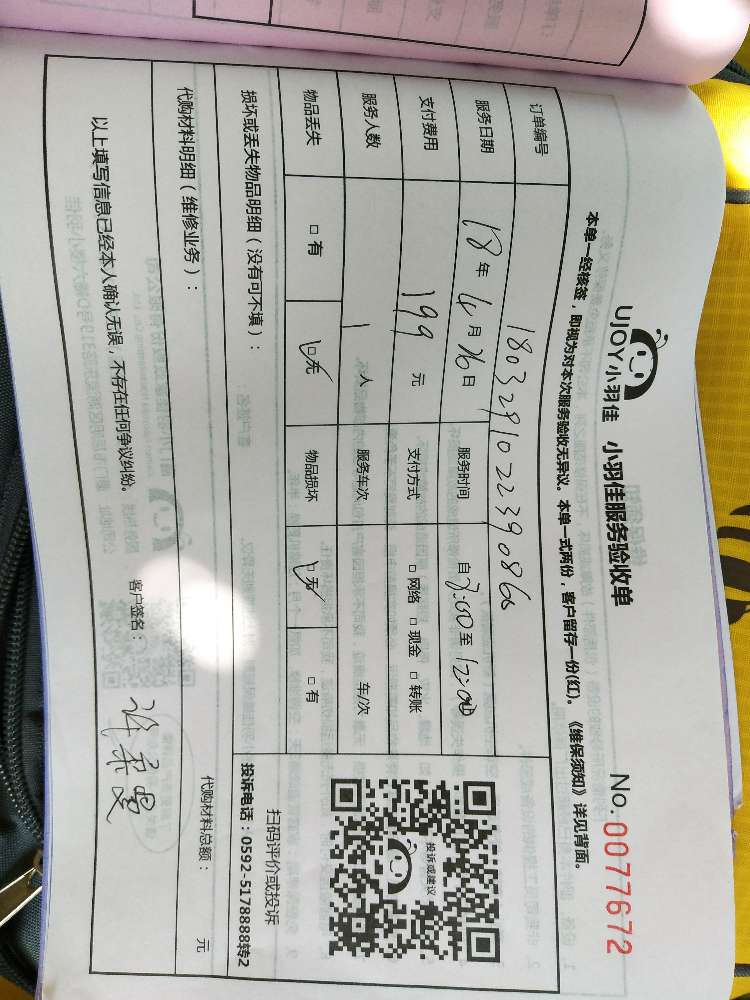 UJOY小羽佳 小羽佳服务验收单 No.0077672
本单一经核签，即视为对本次服务验收无异议。本单一式两份，客户留存一份(红)。《维保须知》详见背面。
订单编号
服务日期 18年4月26日 服务时间 自 :00至12:00
支付费用 199元 支付方式 □网络 □现金 □转账
服务人数 1人 服务车次 车/次
物品丢失 □有 □无 物品损坏 □无 □有
投诉或建议
扫码评价或投诉
投诉电话：0592-5178888转2
损坏或丢失物品明细（没有可不填）：
代购材料明细（维修业务）： 代购材料总额： 元
以上填写信息已经本人确认无误，不存在任何争议纠纷。 客户签名：